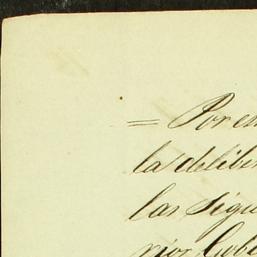 = Por es
la delibe
las sigu
rior Gobe